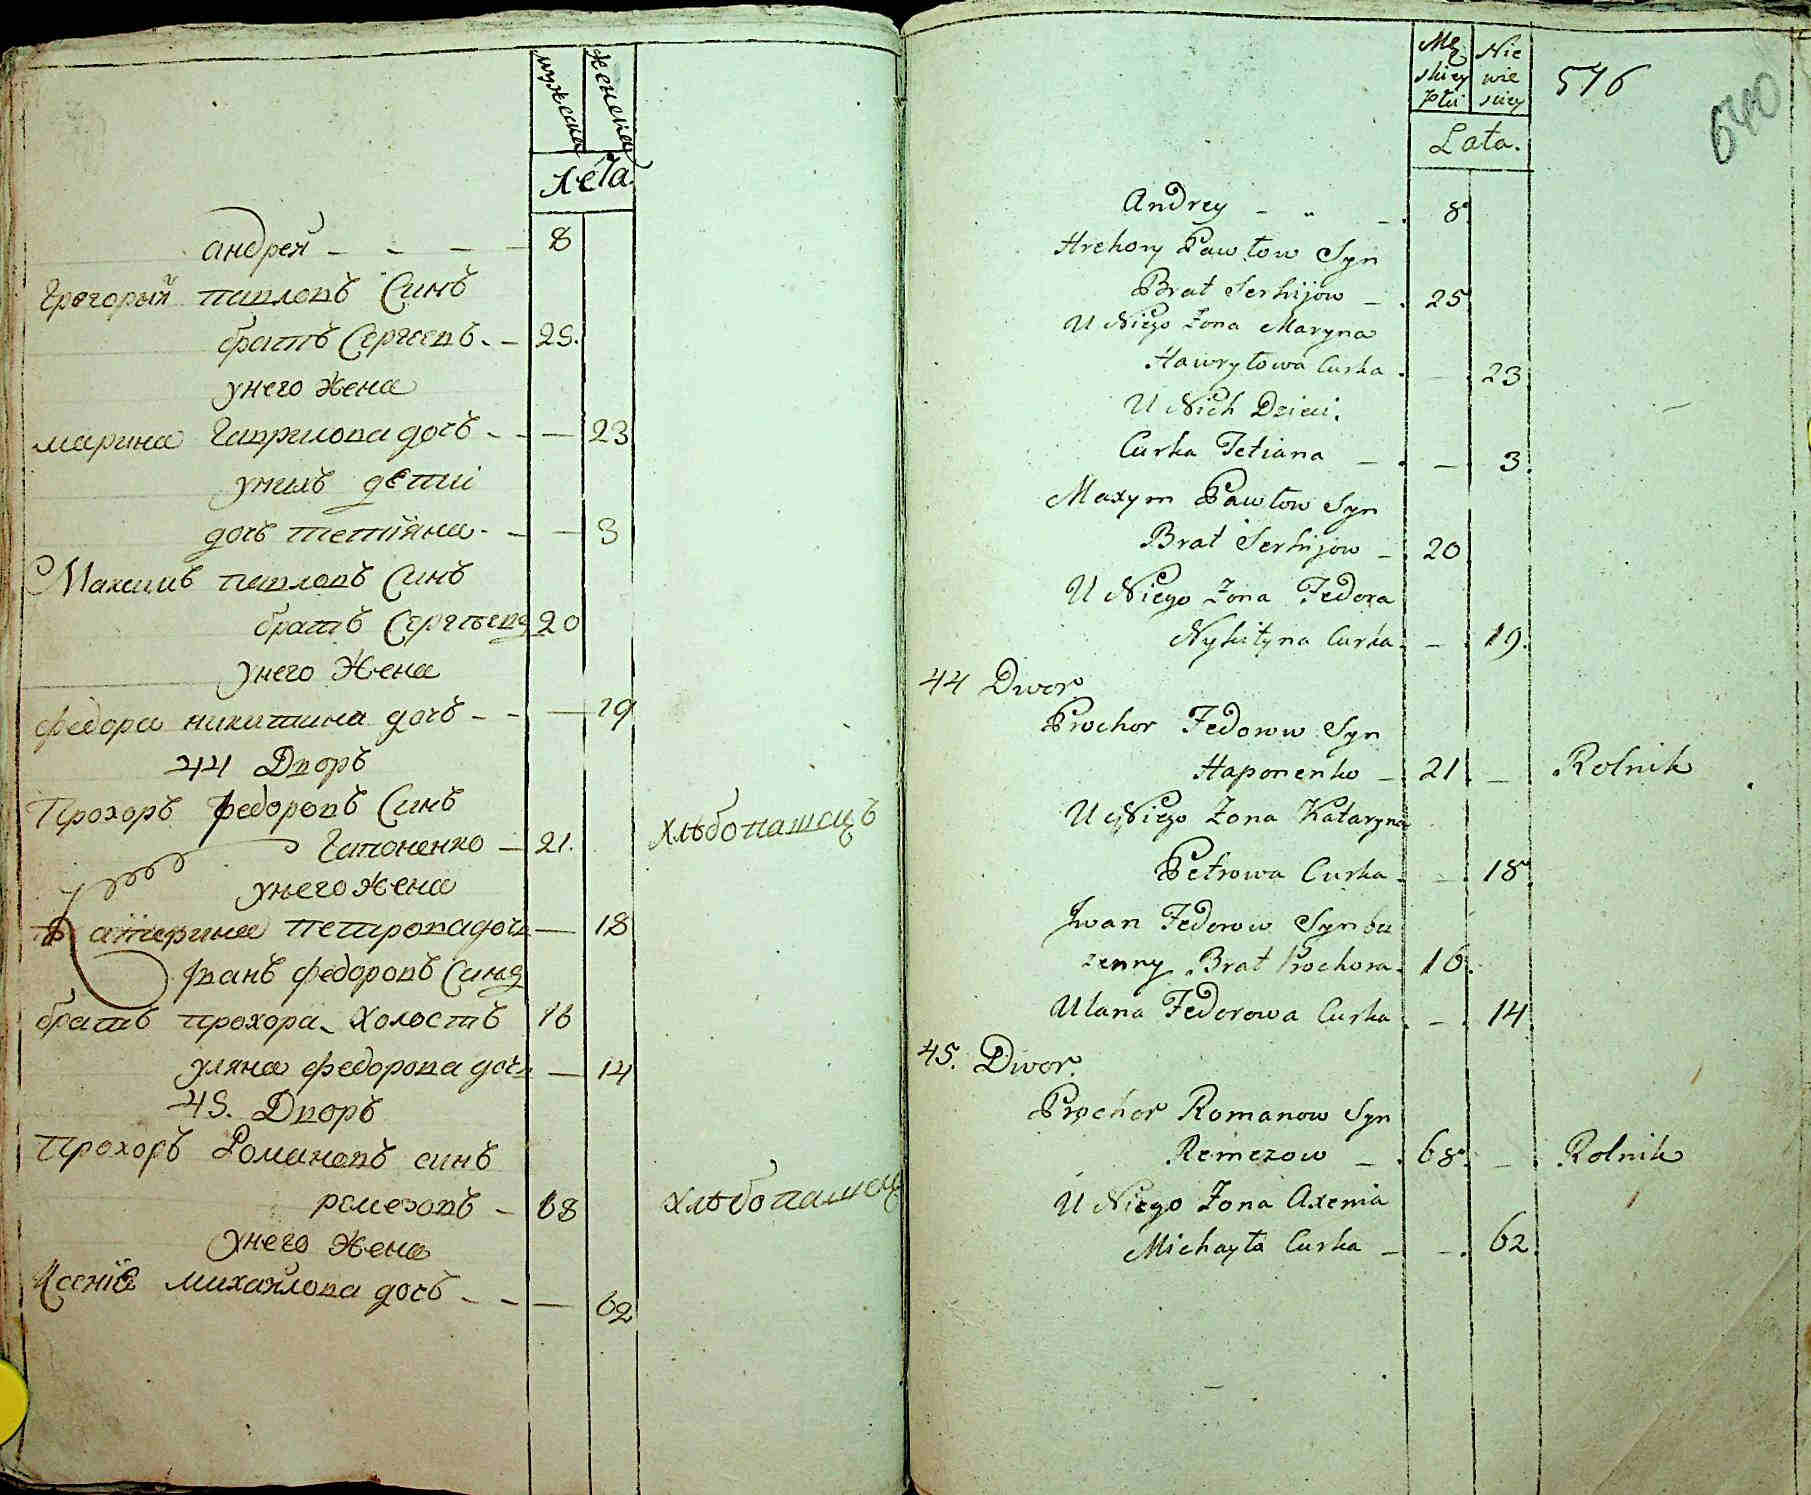 мужеска
женска
Лѣта.
андрей - - - - 8
Григорый павловъ Синъ
братъ Сергеевъ. - 25.
унего жена
марина Гаврилова дочь - - — 23
унихъ детіи
дочъ тетіяна - - — 3
Махимъ павловъ Синъ
братъ Сергѣевъ 20
унего жена
федора никитина дочь - - — 19
44 Дворъ
Прохоръ федоровъ Синъ
Гапоненко - 21. хлѣбопашецъ
унего жена
катерина петрова дочь — 18
Иванъ федоровъ Синъ
братъ прохора - холостъ 16
уляна федорова дочь — 14
45. Дворъ
Прохоръ Романовъ синъ
ремезовъ - 68 хлѣбопашецъ
унего жена
Ксенія михайлова дочь - - — 62
Mę
skiey
Płci
Nie
wie
sciey
576
640
Lata.
Andrey - „ - 8.
Hrehory Pawłow Syn
Brat Serhijow - 25
U Niego Żona Maryna
Hawryłowa Curka - — 23
U Nich Dzieci.
Curka Tetiana - — 3.
Maxym Pawłow Syn
Brat Serhijow - 20
U Niego Żona Fedora
Nykityna Curka. - 19.
44 Dwor
Prochor Fedorow Syn
Haponenko - 21. - Rolnik
U Niego Żona Kataryna
Petrowa Curka. - 18.
Jwan Fedorow Syn bez
żenny Brat Prochora. 16.
Ulana Fedorowa Curka. - 14
45. Dwor.
Prochor Romanow Syn
Remezow - 68. - Rolnik
U Niego Żona Axenia
Michayła Curka - - 62.